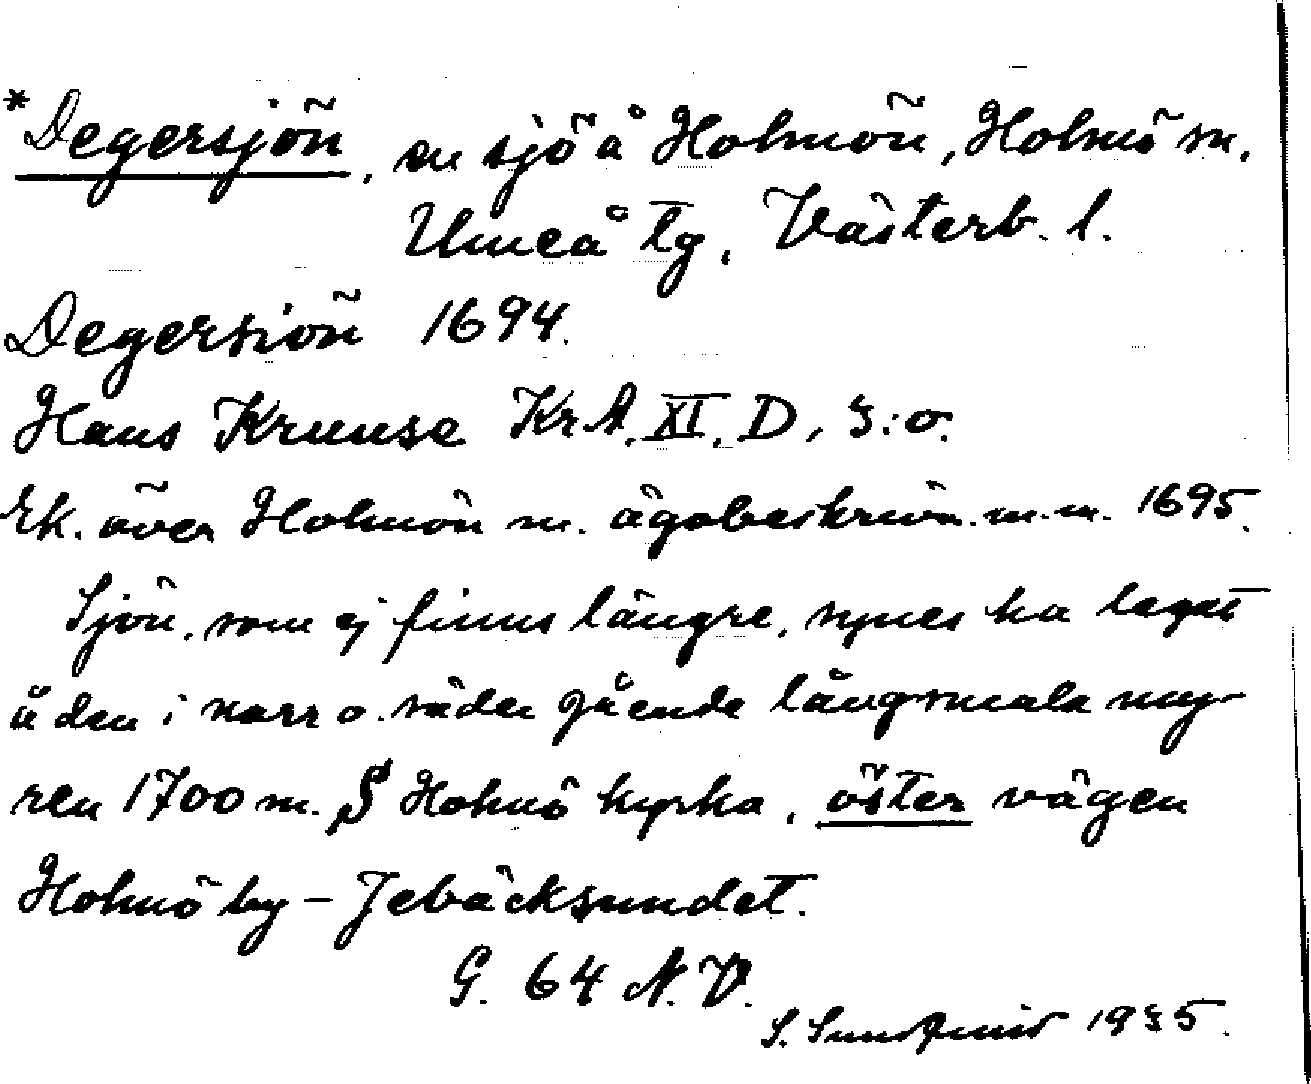 *Degersjön, en sjö å Holmön, Holmö sn,
Umeå tg, Västerb. l.
Degersiön 1694.
Hans Kruuse KrA. XI, D, 3:o.
Ek. över Holmön m. ägobeskrivn. m.m. 1695.
Sjön, som ej finns längre, synes ha legat
å den i norr o. söder gående långsmala myr-
ren 1700 m. S Holmö kyrka, öster vägen
Holmö by - Jebäcksundet.
G. 64 N.V.
S. 1935.